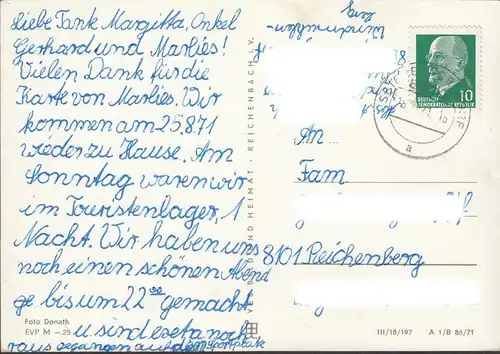 Liebe Tante Margitta, Onkel
Gerhard und Marlies!
Vielen Dank für die
Karte von Marlies. Wir
kommen am 25.8.71
wieder zu Hause. Am
Sonntag waren wir
im Touristenlager, 1
Nacht. Wir haben uns
noch einen schönen Abend
ge bis um 22 00 gemacht
u sind
noch
raus gegangen auf dem
Foto Donath
EVP M –.25
UND HEIMAT · REICHENBACH I. V.
10
DEUTSCHE
DEMOKRATISCHE REPUBLIK
a
An...
Fam
8101 Reichenberg
III/18/197 A 1/B 86/71